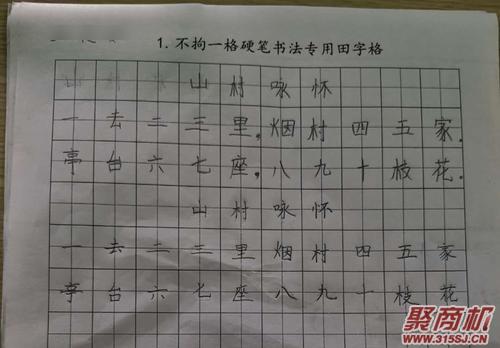 1.不拘一格硬笔书法专用田字格
山村咏怀
一去二三里。烟村四五家.
亭台六七座。八九十枝花.
山村咏怀
一去二三里烟村四五家
亭台六七座八九十枝花
聚商机
www.315SJ.CN